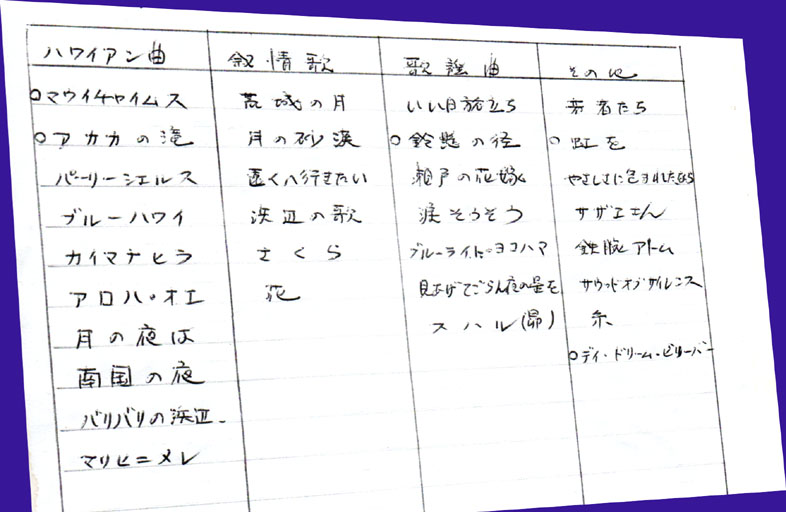 ハワイアン曲
○マウイチャイムス
○アカカの滝
パーリーシェルス
ブルーハワイ
カイマナヒラ
アロハ・オエ
月の夜は
南国の夜
バリバリの浜辺.
マリヒニメレ
叙情歌
荒城の月
月の砂漠
遠くへ行きたい
浜辺の歌
さくら
花
歌謡曲
いい日旅立ち
○鈴懸の径
瀬戸の花嫁
涙そうそう
ブルーライト・ヨコハマ
見あげてごらん夜の星を
スバル(昴)
その他
若者たち
○虹を
やさしさに包まれたなら
サザエさん
鉄腕アトム
サウンドオブサイレンス
糸
○デイ・ドリーム・ビリーバー